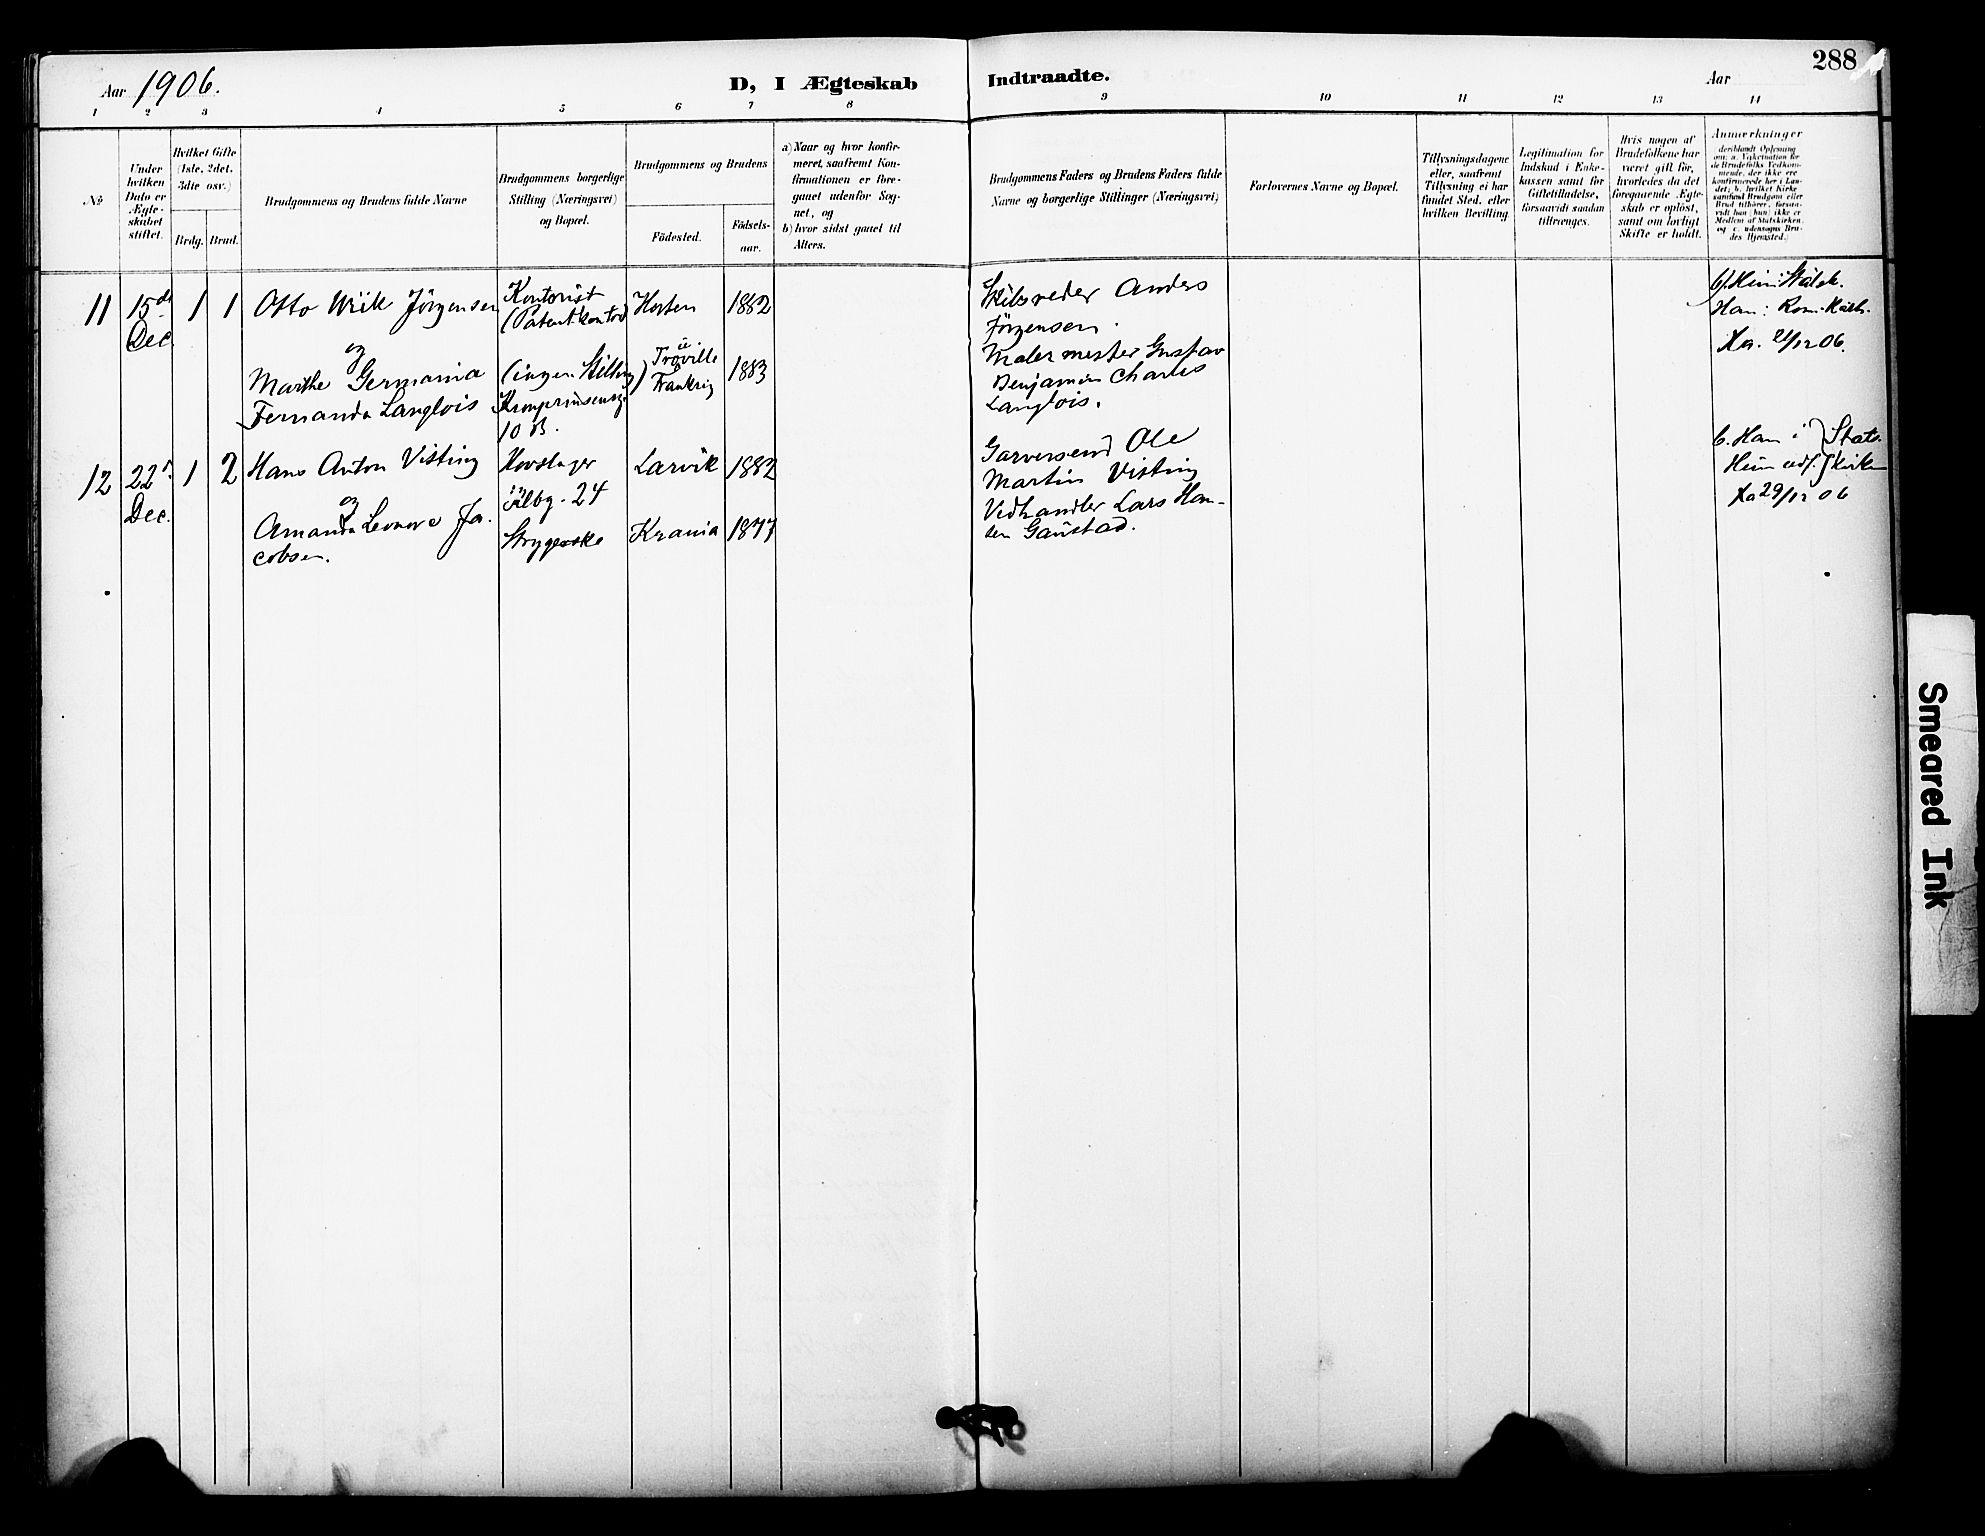 Aar 1906.
D, I Ægteskab Indtraadte.
Aar
288
1 2 3 4 5 6 7 8 9 10 11 12 13 14
№
Under
hvilken
Dato er
Ægte-
skabet
stiftet.
Hvilket Gifte
(1ste, 2det,
3die osv.)
Brdg. Brud.
Brudgommens og Brudens fulde Navne
Brudgommens borgerlige
Stilling (Næringsvei)
og Bopæl.
Brudgommens og Brudens
Födested.
Födsels-
aar.
a) Naar og hvor konfir-
meret, saafremt Kon-
firmationen er fore-
gaaet udenfor Sog-
net, og
b) hvor sidst gaaet til
Alters.
Brudgommens Faders og Brudens Faders fulde
Navne og borgerlige Stillinger (Næringsvei)
Forlovernes Navne og Bopæl.
Tillysningsdagene
eller, saafremt
Tillysning ei har
fundet Sted, efter
hvilken Bevilling.
Legitimation for
Indskud i Enke-
kassen samt for
Giftetilladelse,
forsaavidt saadan
tiltrænges.
Hvis nogen af
Brudefolkene har
været gift før,
hvorledes da det
foregaaende Ægte-
skab er oplöst,
samt om lovligt
Skifte er holdt.
Anmærkninger
deriblandt Oplysning
om: a. Vakcination for
de Brudefolks Vedkom-
mende, der ikke ere
konfirmerede her i Lan-
det; b. hvilket Kirke
samfund Brudgom eller
Brud tilhörer, forsaa-
vidt han (hun) ikke er
Medlem af Statskirken,
og c. udensogns Bru-
des Hjemsted.)
11 15de Dec. 1 1
Otto Wiik Jörgensen
og
Marthe Germania
Fernanda Langlois
Kontorist
(Patentkontor)
(ingen Stilling)
Kronprinsensg.
10 B.
Horten 1882
Trouville
Frankrig 1883
Skibsreder Anders
Jörgensen.
Malermester Gustav
Benjamin Charles
Langlois.
Han: Rom. Kath.
12 22d Dec. 1 2
Hans Anton Visting
og
Amanda Leonore Ja-
cobsen.
Hovslager
24
Strygerske
Larvik 1882
Krania 1877
Garversvend Ole
Martin Visting
Vedhandler Lars Han-
sen Gaustad.
b. Han i } Stats-
Hun udf. } kirken
29/12 06
Smeared Ink